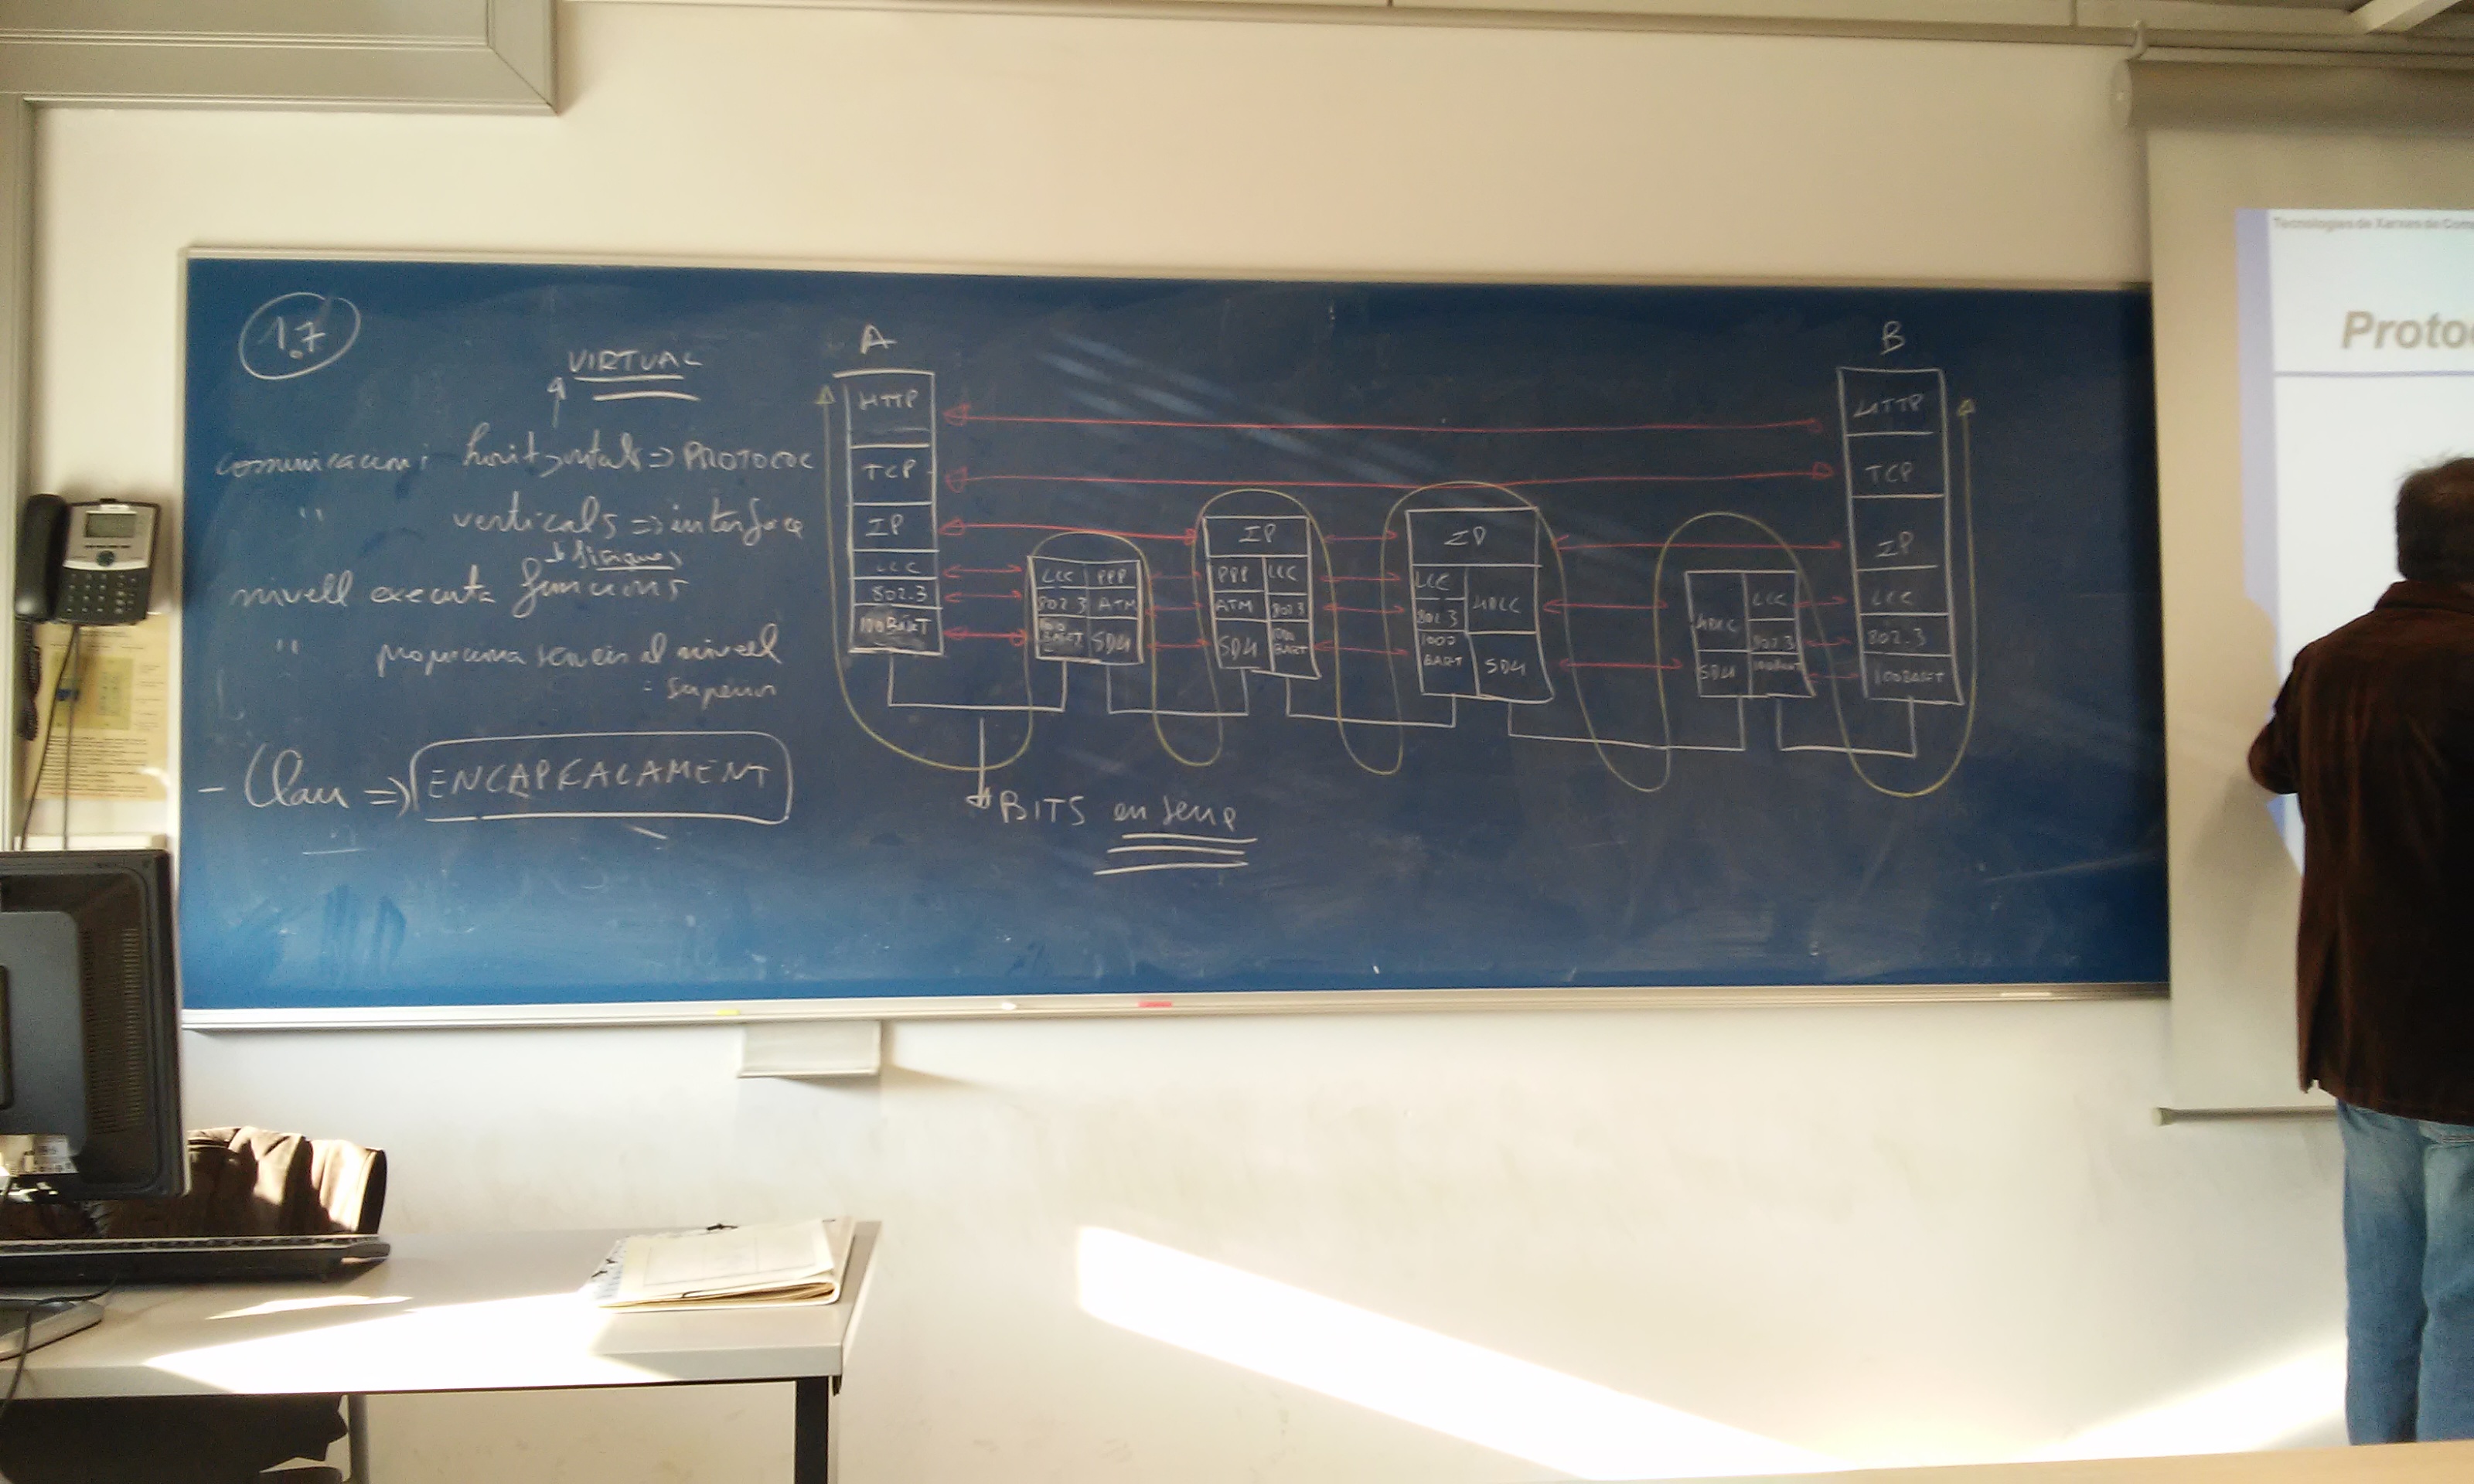 1.7
VIRTUAL
comunicacions horitzontals => PROTOCOL
" verticals => interface
físiques
nivell executa funcions
" proporciona serveis al nivell
superior
- Clau => ENCAPSALAMENT
A
HTTP
TCP
IP
LLC
802.3
100BASET
LLC PPP
802.3 ATM
100 BASET SDH
IP
PPP LLC
ATM 802.3
SDH 100 BASET
IP
LLC HDLC
802.3
100 BASET SDH
HDLC LLC
802.3
SDH 100BASET
B
HTTP
TCP
IP
LLC
802.3
100BASET
BITS en serie
Tecnologies de Xarxes de Com
Proto